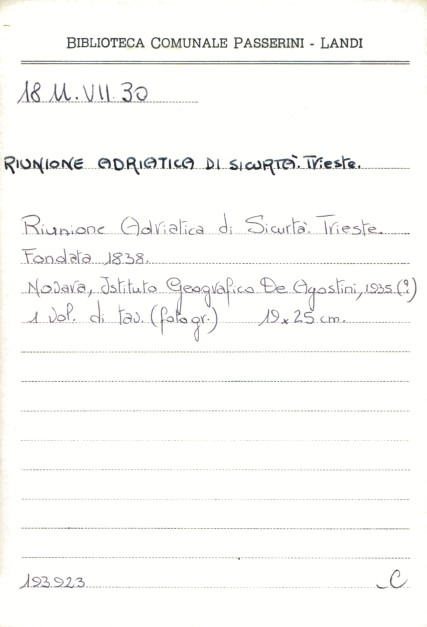 BIBLIOTECA COMUNALE PASSERINI - LANDI
18 U. VII 30
RIUNIONE ADRIATICA DI SICURTÀ. Trieste.
Riunione Adriatica di Sicurtà. Trieste.
Fondata 1838.
Novara, Istituto Geografico De Agostini, 1935 (?)
1 vol. di tav. (fotogr.) 19 x 25 cm.
193923 C